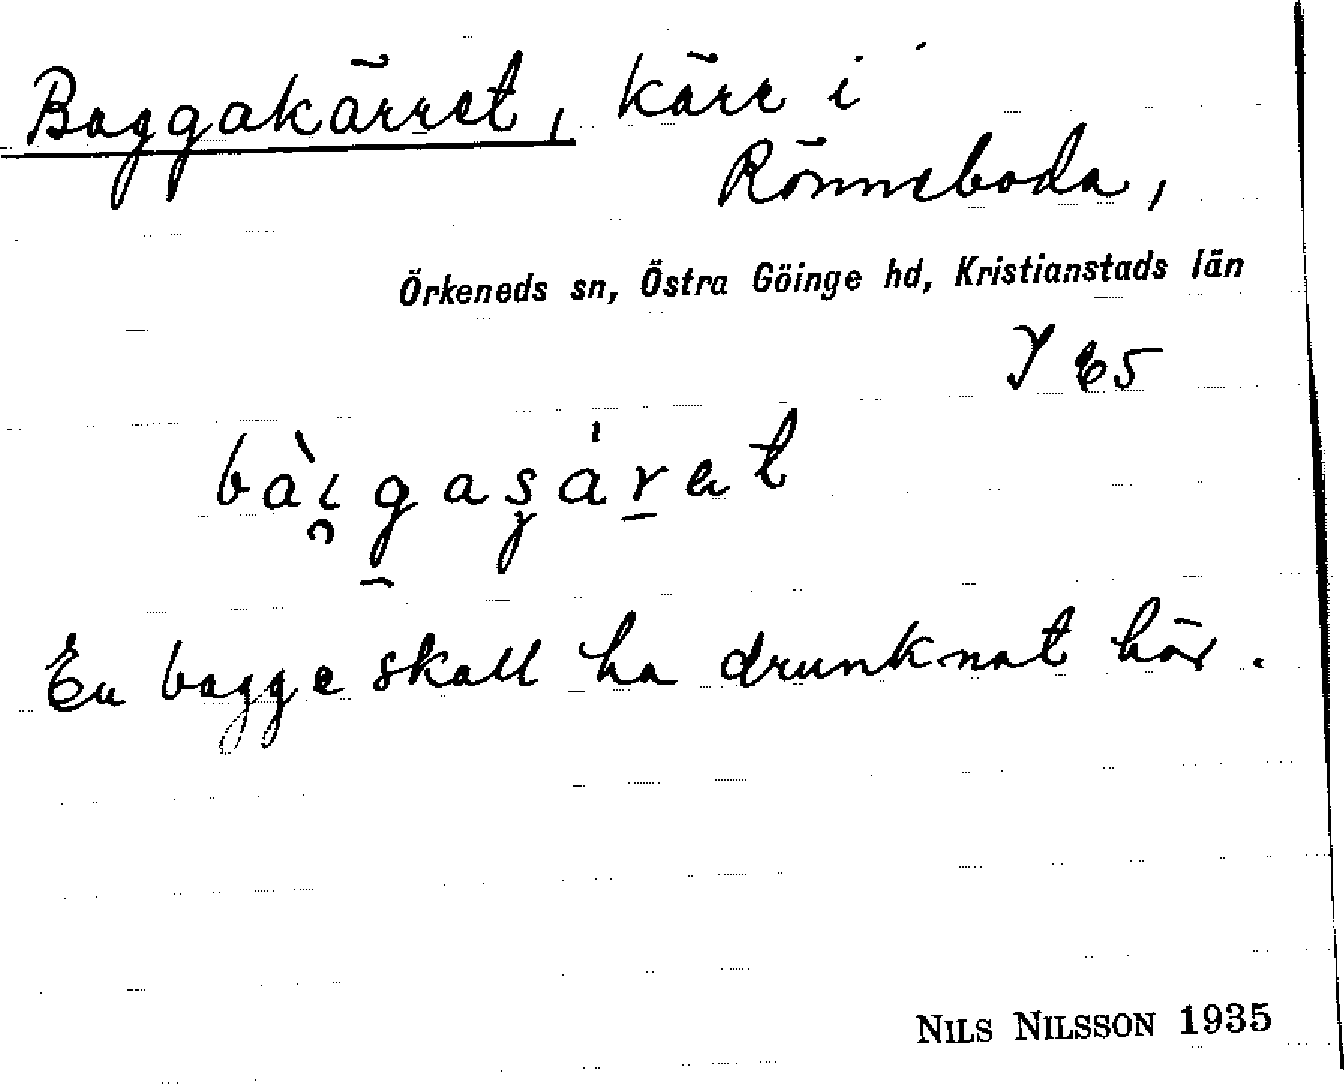 Baggakärret, kärr i
Rönneboda,
Örkeneds sn, Östra Göinge hd, Kristianstads län
Y E5
En bagge skall ha drunknat här.
NILS NILSSON 1935